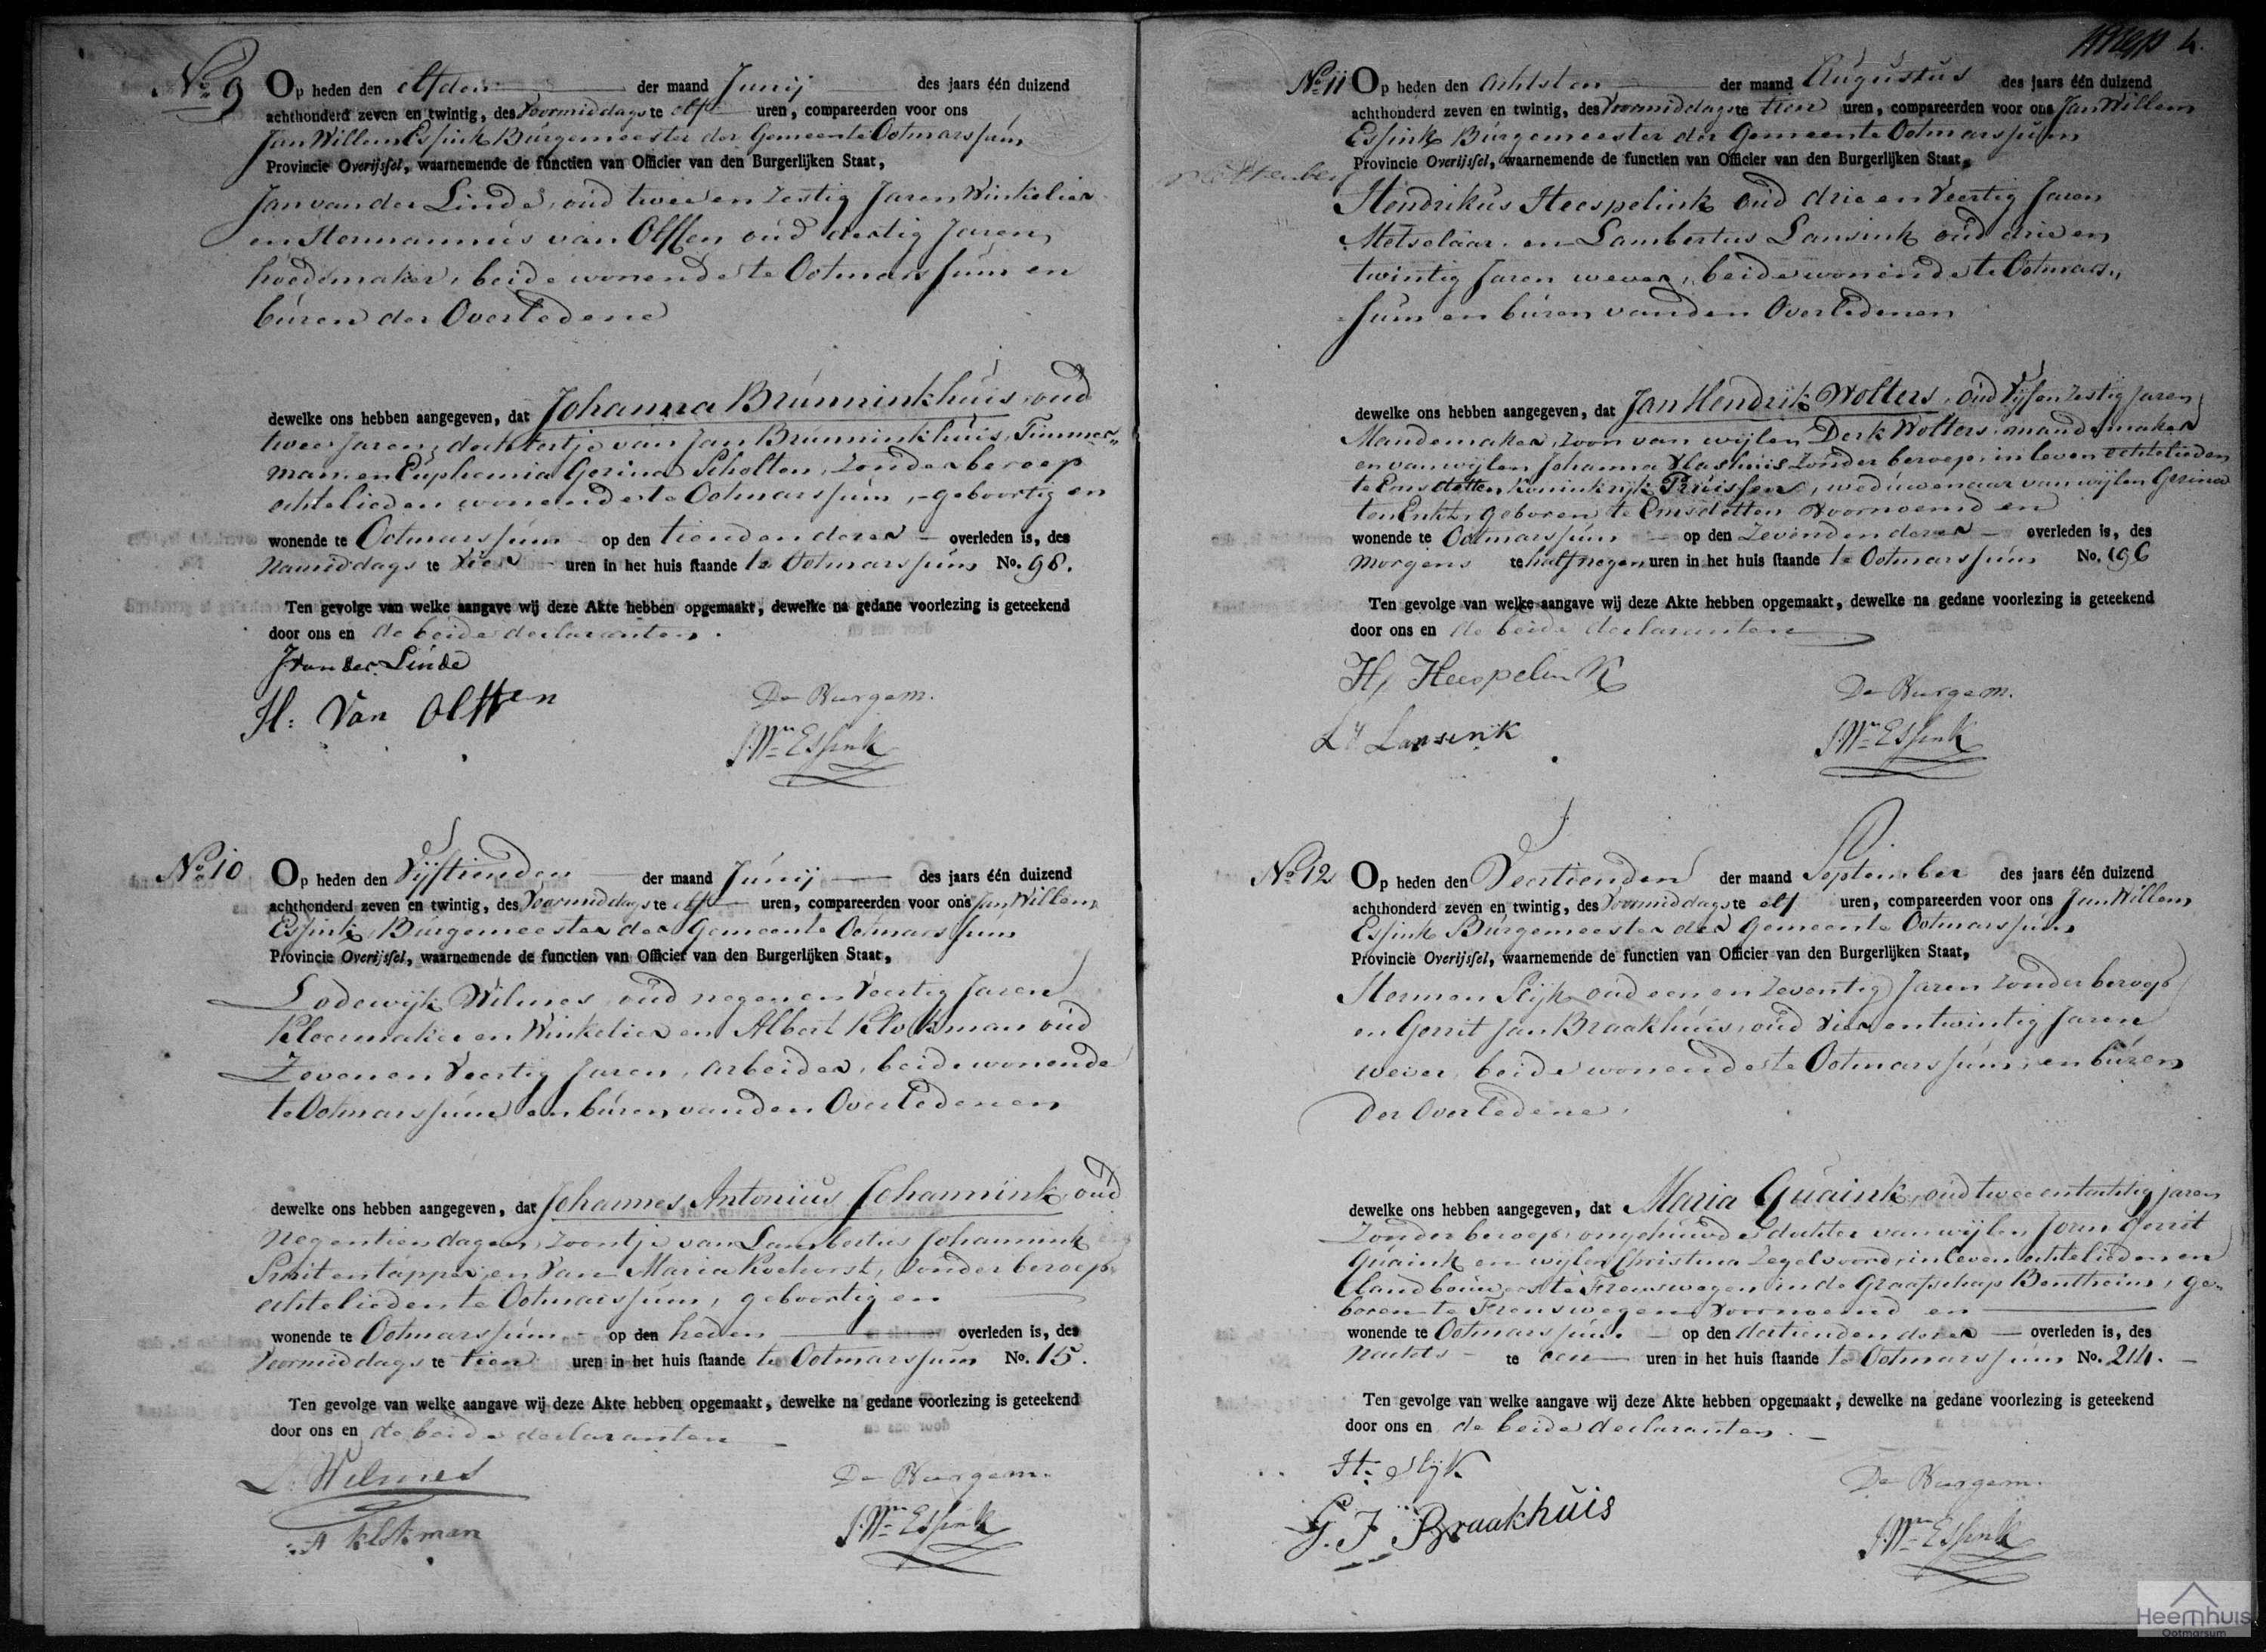 No 9 Op heden den elfden der maand Junij des jaars één duizend
achthonderd zeven en twintig, des Voormiddags te elf uren, compareerden voor ons
Jan Willem Essink Burgemeester der Gemeente Ootmarssum
Provincie Overijssel, waarnemende de functien van Officier van den Burgerlijken Staat,
Jan van der Linde, oud twee en zestig Jaren Winkelier
en Hermannus van Olffen oud dertig Jaren,
hoedemaker, beide wonende te Ootmarssum en
buren der Overledene
dewelke ons hebben aangegeven, dat Johanna Brunninkhuis, oud
twee Jaren, dochtertje van Jan Brunninkhuis, Timmer„
man, en Euphemia Gerina Scholten, zonder beroep
echtelieden wonende te Ootmarssum, geboortig en
wonende te Ootmarssum op den tienden derer overleden is, des
Namiddags te vier uren in het huis staande te Ootmarssum No. 98.
Ten gevolge van welke aangave wij deze Akte hebben opgemaakt, dewelke na gedane voorlezing is geteekend
door ons en de beide declaranten.
J van der Linde
H: Van Olffen
De Burgem.
J. Wm Essink
No 10 Op heden den Vijftienden der maand Junij des jaars één duizend
achthonderd zeven en twintig, des Voormiddags te elf uren, compareerden voor ons Jan Willem
Essink, Burgemeester der Gemeente Ootmarssum
Provincie Overijssel, waarnemende de functien van Officier van den Burgerlijken Staat,
Lodewijk Wilmes oud negen en Veertig Jaren
Kleermaker en Winkelier en Albert Klokman oud
Zeven en Veertig Jaren, arbeider, beide wonende
te Ootmarssum en buren van den Overledenen
dewelke ons hebben aangegeven, dat Johannes Antonius Johannink, oud
Negentien dagen, zoontje van Lambertus Johannink
Smit en tapper, en van Maria Koehorst, zonder beroep,
echtelieden te Ootmarssum, geboortig en
wonende te Ootmarssum op den heden overleden is, des
Voormiddags te tien uren in het huis staande te Ootmarssum No. 15.
Ten gevolge van welke aangave wij deze Akte hebben opgemaakt, dewelke na gedane voorlezing is geteekend
door ons en de beide declaranten
L. Wilmes
A Klokman
De Burgem.
J. Wm Essink
4.
No 11 Op heden den Achtsten der maand Augustus des jaars één duizend
achthonderd zeven en twintig, des Voormiddags te tien uren, compareerden voor ons Jan Willem
Essink Burgemeester der Gemeente Ootmarssum
Provincie Overijssel, waarnemende de functien van Officier van den Burgerlijken Staat,
Hendrikus Heespelink oud drie en Veertig Jaren
Metselaar en Lambertus Lansink oud drie en
twintig Jaren wever, beide wonende te Ootmars„
sum en buren van den Overledenen
dewelke ons hebben aangegeven, dat Jan Hendrik Wolters, oud Vijf en zestig Jaren
Mandemaker, zoon van wijlen Derk Wolters, mandemaker
en van wijlen Johanna Vlashuis zonder beroep, in leven echtelieden
te Emsdetten Koninkrijk Pruissen, weduwenaar van wijlen Gerina
ten Enkt, geboren te Emsdetten voornoemd en
wonende te Ootmarssum op den Zevenden derer overleden is, des
Morgens te half negen uren in het huis staande te Ootmarssum No. 196
Ten gevolge van welke aangave wij deze Akte hebben opgemaakt, dewelke na gedane voorlezing is geteekend
door ons en de beide declaranten
H, Heespelink
L H Lansink
De Burgem.
J. Wm Essink
No 12 Op heden den Veertienden der maand September des jaars één duizend
achthonderd zeven en twintig, des Voormiddags te elf uren, compareerden voor ons Jan Willem
Essink Burgemeester der Gemeente Ootmarssum
Provincie Overijssel, waarnemende de functien van Officier van den Burgerlijken Staat,
Hermen Slijk, oud een en zeventig Jaren zonder beroep
en Gerrit Jan Braakhuis, oud Vier en twintig Jaren
wever, beide wonende te Ootmarssum, en buren
der Overledene,
dewelke ons hebben aangegeven, dat Maria Quaink, oud twee en tachtig jaren
Zonder beroep, ongehuwde dochter van wijlen Joan Gerrit
Quaink en wijlen Christina Zegelvoord, in leven echtelieden en
Landbouwers te Frenswegen in de Graafschap Bentheim, ge„
boren te Frenswegen voornoemd en
wonende te Ootmarssum op den dertienden derer overleden is, des
Nachts te een uren in het huis staande te Ootmarssum No. 214.
Ten gevolge van welke aangave wij deze Akte hebben opgemaakt, dewelke na gedane voorlezing is geteekend
door ons en de beide declaranten.
H: Slijk
G. J Braakhuis
De Burgem.
J. Wm Essink
Heemhuis
Ootmarsum